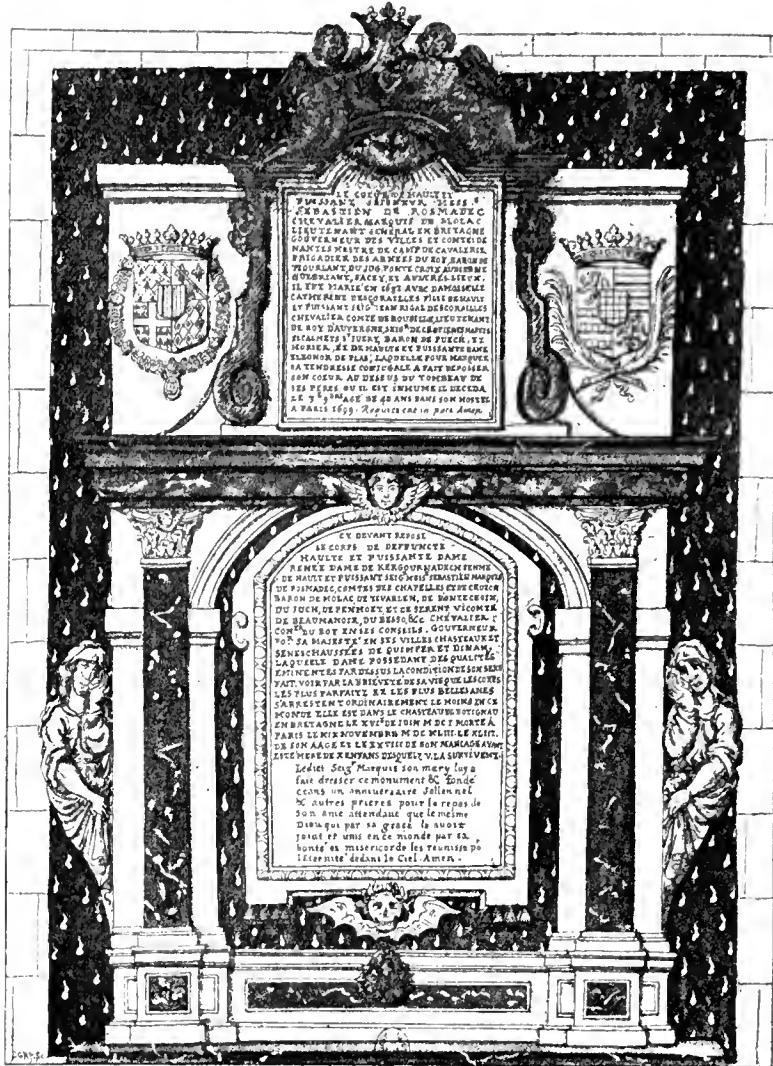 LE COEUR DE HAULT ET
PUISSANT SEIGNEUR MESS.e
SEBASTIEN DE ROSMADEC
CHEVALIER MARQUIS DE MOLAC
LIEUTENANT GENERAL EN BRETAGNE
GOUVERNEUR DES VILLES ET COMTE DE
NANTES MESTRE DE CAMP DE CAVALERIE
BRIGADIER DES ARMEES DU ROY, BARON DE
TIOUARLANT, DU JUG, PONTE CROIX AUDIERNE
GUEBRIANT, SACEY, ET AUTRES LIEUX.
IL EPT MARIE EN 1681 AVEC DAMOISELLE
CATHERINE DESCORAILLES FILLE DE HAULT
ET PUISSANT SEIGr IEAN RIGAL DESCORAILLES
CHEVALIER COMTE DE ROUSILLE, LIEUTENANT
DE ROY D'AUVERGNE, SEIGr DE
St IUERY, BARON DE PUECH, ET
MORIER, ET DE HAULTE ET PUISSANTE DAME
ELEONOR DE PLAS, LAQUELLE POUR MARQUER
SA TENDRESSE CONJUGALE A FAIT DEPOSER
SON COEUR AU DESSUS DU TOMBEAU DE
SES PERES OU IL EST INHUME IL DECEDA
LE 3e 9bre AGE DE 40 ANS DANS SON HOSTEL
A PARIS 1699. Requiescat in pace Amen
CY DEVANT REPOSE
LE CORPS DE DEFFUNCTE
HAULTE ET PUISSANTE DAME
RENEE DAME DE KERGOURNADECH FEMME
DE HAULT ET PUISSANT SEIGr MESSe SEBASTIEN MARQUIS
DE ROSMADEC, COMTE DES CHAPELLES ET DE CROZON
BARON DE MOLAC DE TEVARLEN, DE PONTECROIX,
DU JUCH, DE PENHOET, ET DE SERENT VICOMTE
DE BEAUMANOIR, DU BESSO, &c CHEVALIER
CONer DU ROY EN SES CONSEILS, GOUVERNEUR
POr SA MAJESTE EN SES VILLES CHASTEAU ET
SENESCHAUSSEES DE QUIMPER ET DINAM,
LAQUELE DAME POSSEDANT DES QUALITES
EMINENTES PAR DESSUS LA CONDITION DE SON SEXE
FAIT VOIR PAR LA BRIEVETE DE SA VIE QUE LES CORPS
LES PLUS PARFAITZ ET LES PLUS BELLES AMES
S'ARRESTENT ORDINAIREMENT LE MOINS EN CE
MONDE ELLE EST DANS LE CHASTEAU DE BOTIGNAU
EN BRETAGNE LE XVIe DE JUIN M DC I MORTE A
PARIS LE NOVEMBRE M DC XLIII. LE XLIII.
DE SON AAGE ET LE XXVIII DE SON MARIAGE AYANT
ESTE MERE DE ENFANS DESQUELZ V. LA SURVIVENT.
Ledict Seigr Marquis son mary luy a
fait dresser ce monument &c fondé
ceans un anniversaire Sollennel
&c autres prieres pour le repos de
son ame attendant que le mesme
Dieu qui par sa grace le avoit
joint et unis en ce monde par sa
bonté et misericorde les reunisse po
l'eternité dedans le Ciel. Amen.